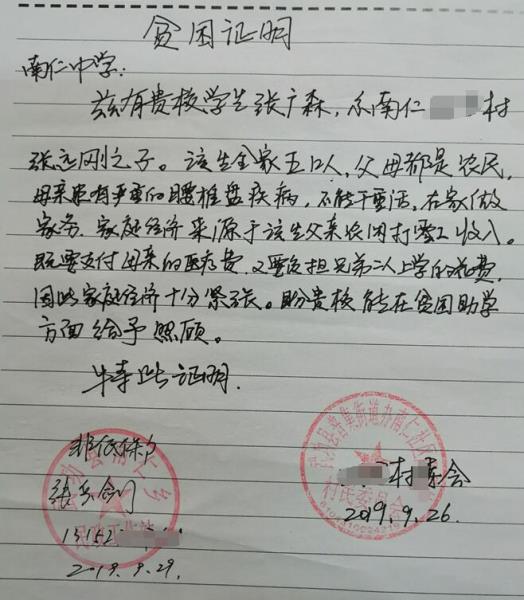 贫困证明
南仁中学：
兹有贵校学生张广森，系南仁 村
张志刚之子。该生全家五口人，父母都是农民，
母亲患有严重的腰椎盘疾病，不能干重活，在家做
家务。家庭经济来源于该生父亲农闲打零工收入。
既要支付母亲的医疗费，又要负担兄弟二人上学的花费，
因此家庭经济十分紧张。盼贵校能在贫困助学
方面给予照顾。
特此证明.
非低保户
村委会
2019.9.26.
13152
2019.9.29.
村民委员会